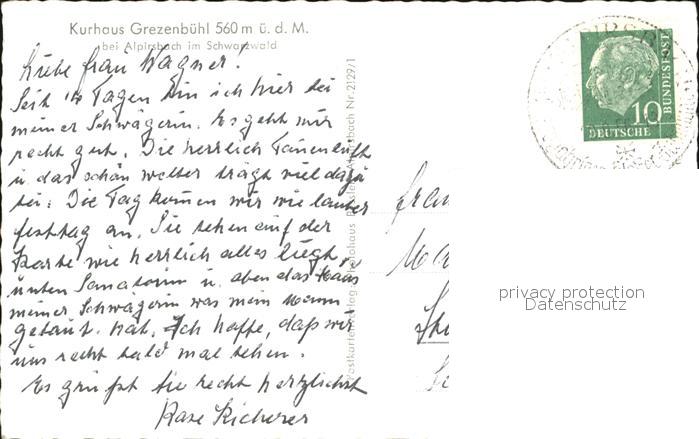 Kurhaus Grezenbühl 560 m ü. d. M.
bei Alpirsbach im Schwarzwald
Liebe Frau Wagner!
Seit 14 Tagen bin ich hier bei
meiner Schwägerin. Es geht mir
recht gut. Die herrlich Tannenluft
u. das schön wetter trägt viel dazu
bei. Die Tag kommen wir wie lauter
festtag an. Sie sehen auf der
Karte wie herrlich alles liegt,
unten Sanatorium u. oben das Haus
meiner Schwägerin was mein Mann
gebaut hat. Ich hoffe, daß wir
uns recht bald mal sehen.
Es grüßt Sie recht herzlichst
Frau
10
DEUTSCHE
BUNDESPOST
privacy protection
Datenschutz